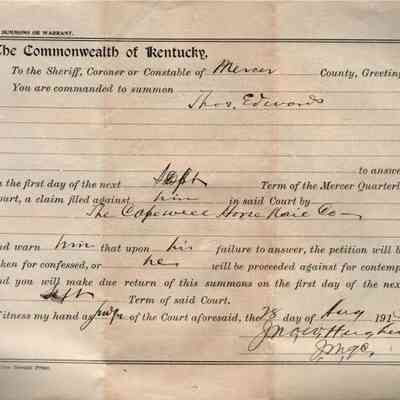 SUMMONS OR WARRANT.
The Commonwealth of Kentucky,
To the Sheriff, Coroner or Constable of Mercer County, Greeting
You are commanded to summon
Thos. Edwards
to answer
n the first day of the next Sept Term of the Mercer Quarterl
ourt, a claim filed against him in said Court by
The Capewell Horse Nail Co
nd warn him that upon his failure to answer, the petition will be
aken for confessed, or he will be proceeded against for contemp
nd you will make due return of this summons on the first day of the next
Sept Term of said Court.
Witness my hand as Judge of the Court aforesaid, the 28 day of Aug 191
Jno. W. Hughes
Press.